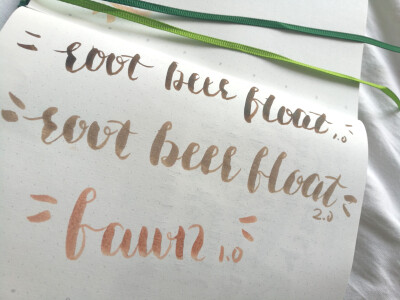 root beer float 1.0
root beer float 2.0
fawn 1.0